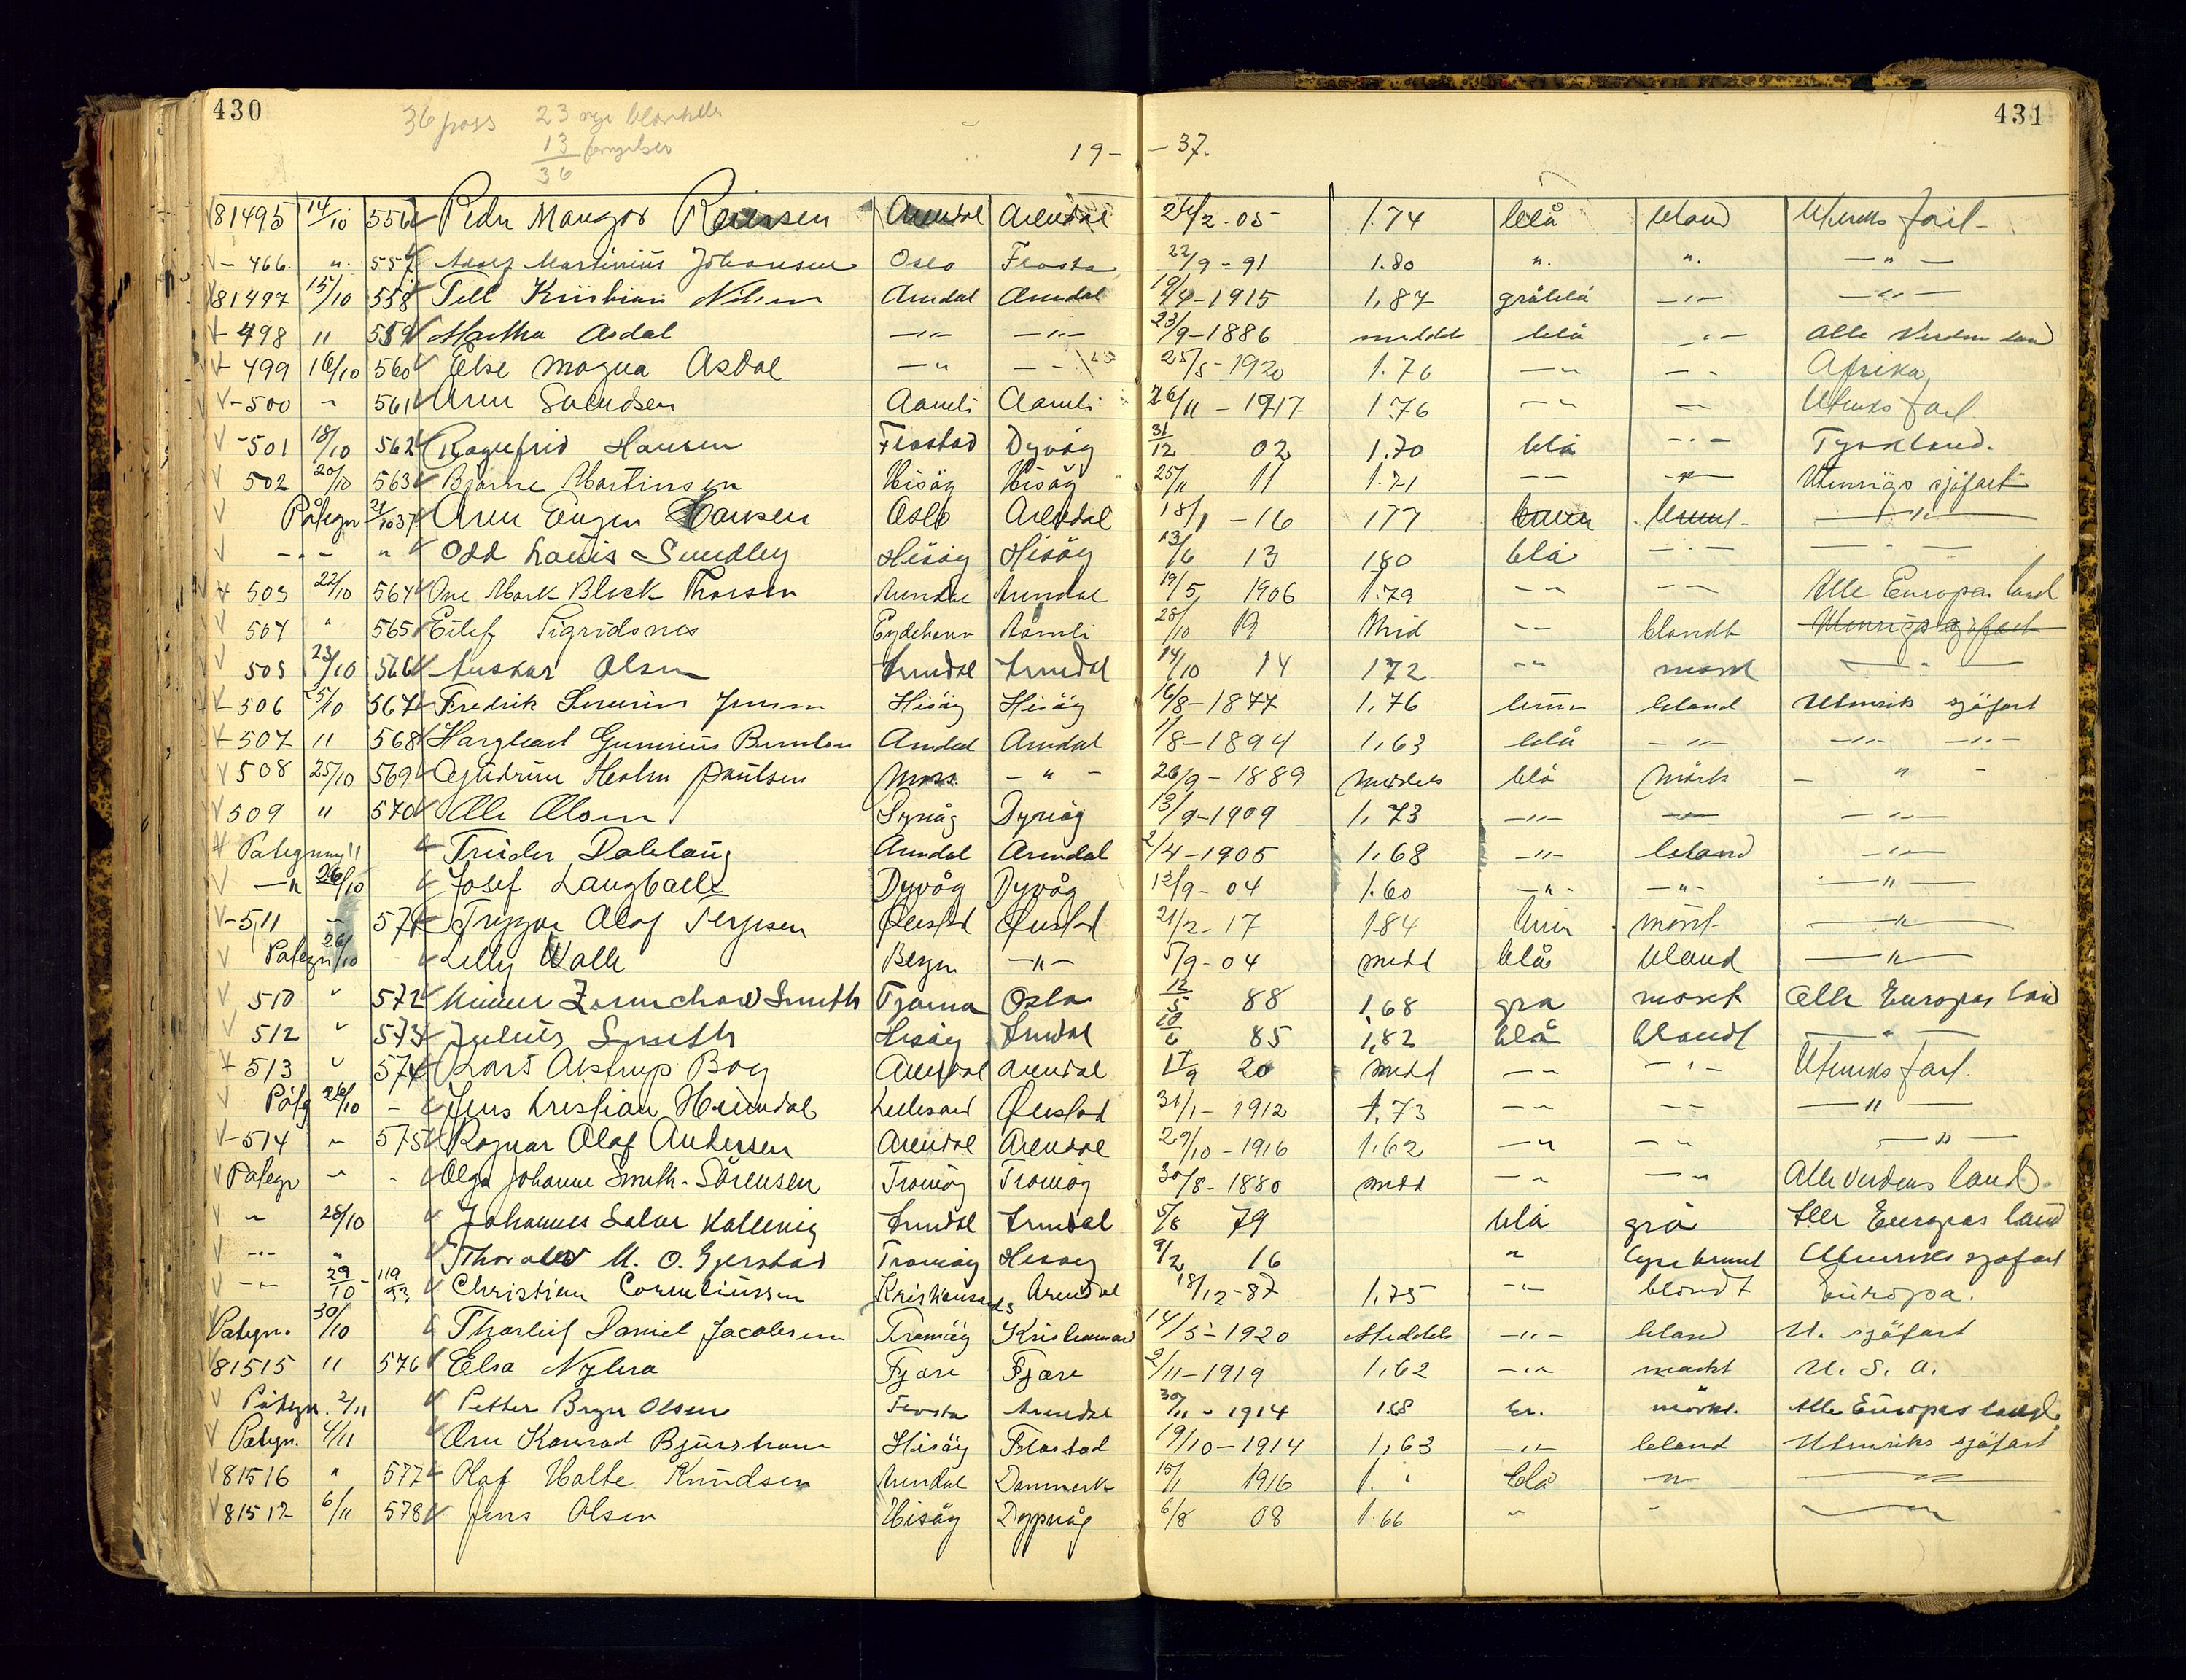 430
431
36 pass 23 nye blanketter
13 fornyelser
36
19- -37.
81495 14/10 556 Peder Mangor Reiersen Arendal Arendal 24/2-05 1.74 blå blond Utenriks fart
- 466. " 557 Adolf Martinius Johansen Oslo Flosta 22/9-91 1.80 " " - " -
81497 15/10 558 Tell Kristian Nilsen Arendal Arendal 19/4-1915 1,87 gråblå -"- -"-
498 " 559 Martha Asdal -"- -"- 23/9-1886 middels blå -"- Alle Verdens land
499 16/10 560 Else Magna Asdal -"- -"- 25/5-1920 1.76 -"- -"- Afrika
-500 " 561 Arne Svendsen Aamli Aamli 26/11-1917 1.76 -"- - Utenriks fart
-501 18/10 562 Ragnfrid Hansen Flostad Dyvåg 31/12 02 1.70 blå -"- Tyskland.
502 20/10 563 Bjarne Martinsen Hisöy Hisöy 25/11 11 1.71 -- -"- Utenrigs sjöfart
Påtegn 21/10 37 Arne Eugen Hansen Oslo Arendal 18/1-16 177 brun brunt -"-
-"- " Odd Louis Sundbey Hisöy Hisöy 13/6 13 180 blå -"- -"-
503 22/10 564 Ove Mork Block Thorsen Arendal Arendal 19/5 1906 1.79 -- -- Alle Europas land
504 " 565 Eilef Tigridsnes Eydehavn Aamli 28/10 19 Mid -- blondt Utenrigs sjöfart
505 23/10 566 Anskar Olsen Arendal Arendal 14/10 14 172 -"- mørk -"-
506 25/10 567 Fredrik Severin Jensen Hisöy Hisöy 16/8-1877 1,76 brun blond Utenriks sjöfart
507 " 568 Arendal Arendal 1/8-1894 1,63 blå -"- -"- -"-
508 25/10 569 Gudrun Holm Paulsen Moss - " - 26/9-1889 middels blå mörk - " -
509 " 570 Olsen Dyvåg Dyvåg 13/9-1909 1,73 -"- -"- -"-
Påtegning " Dahlaug Arendal Arendal 2/4-1905 1,68 -"- blond -"-
-"- 26/10 Josef Langballe Dyvåg Dyvåg 12/9-04 1.60 -"- -"- -"-
-511 - 571 Tryggve Olaf Terjesen Øiestad Øiestad 21/2-17 184 brun mörk -"-
Påtegn 26/10 Lelly Walle Bergen -"- 5/9-04 midd blå blond -"-
510 " 572 Smith Tjøme Oslo 12/5 88 1,68 grå mørk Alle Europas land
512 " 573 Julius Smith Hisöy Arendal 10/6 85 1,82 blå blondt -"-
513 " 574 Lars Akstrup Boy Arendal Arendal 15/9 20 midd -- -"- Utenriks fart.
Påtg 26/10 - Jens Kristian Heimdal Øiestad 31/1-1912 1,73 -- -- -"-
-514 " 575 Ragnar Olaf Andersen Arendal Arendal 29/10-1916 1.62 -"- -"- -"-
Påtegn " - Olga Johanne Smith-Sörensen Tromöy Tromöy 30/8-1880 midd -"- -"- Alle verdens land.
" 28/10 Johannes Salve Kallevig Arendal Arendal 5/6 79 blå grå Alle Europas land
-"- " Thoralv M. O. Gjerstad Tromöy Hisöy 9/2 16 " lyse brunt Utenriks sjøfart
-"- 29/10 - 119/37 Christian Corneliussen Kristiansands Arendal 18/12-87 1,75 -"- blondt Europa.
Påtegn. 30/10 Thorleif Daniel Jacobsen Tromöy Kristiansand 14/5-1920 Middels -"- blond U. sjöfart
81515 " 576 Elsa Nyberg Fjære Fjære 2/11-1919 1,62 -"- mørkt U. S. A.
Påtegn. 2/11 Petter Bryn Olsen Flosta Arendal 30/11-1914 1.68 br. mörkt. Alle Europas land.
Påtegn. 4/11 Arne Konrad Bjurstrøm Hisöy Flostad 19/10-1914 1,63 -"- blond Utenriks sjöfart
81516 " 577 Olaf Holte Knudsen Arendal Danmark 15/1 1916 1. " blå -"- -"-
81517 6/11 578 Jens Olsen Hisöy Dypvåg 6/8 08 1.66 " " -"-